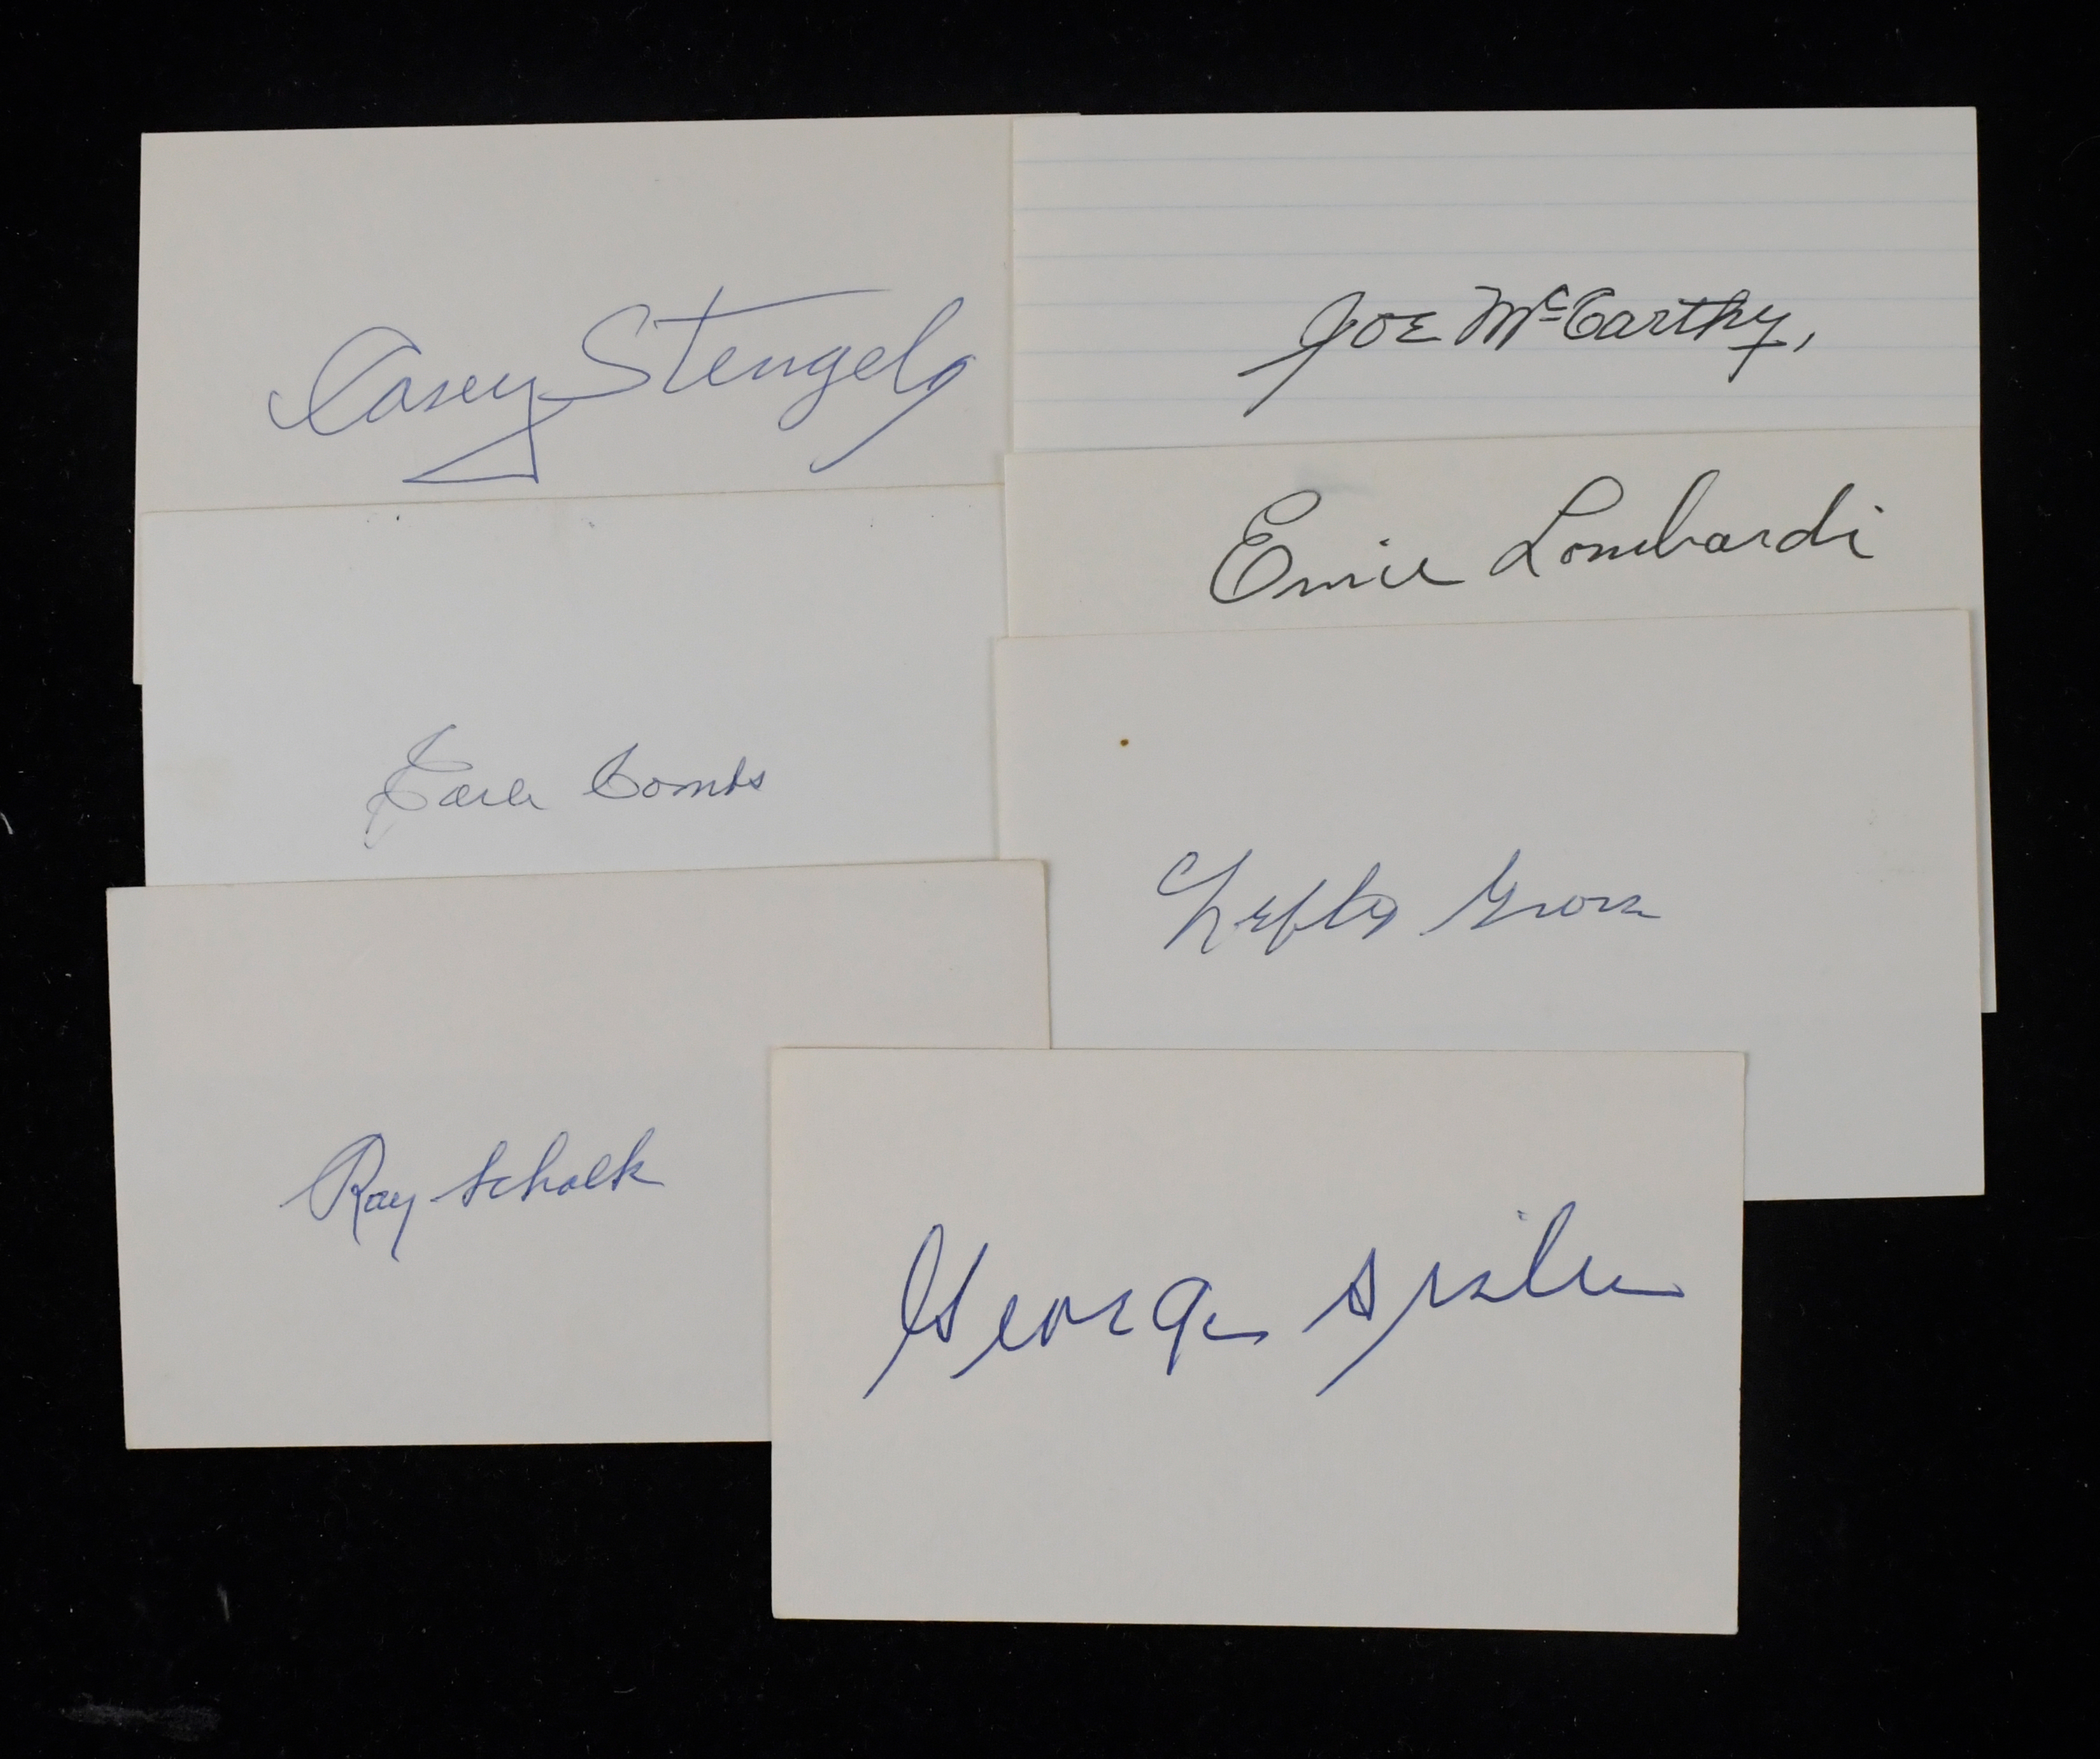 Casey Stengel
Joe McCarthy,
Ernie Lombardi
Earle Combs
Lefty Grove
Ray Schalk
George Sisler